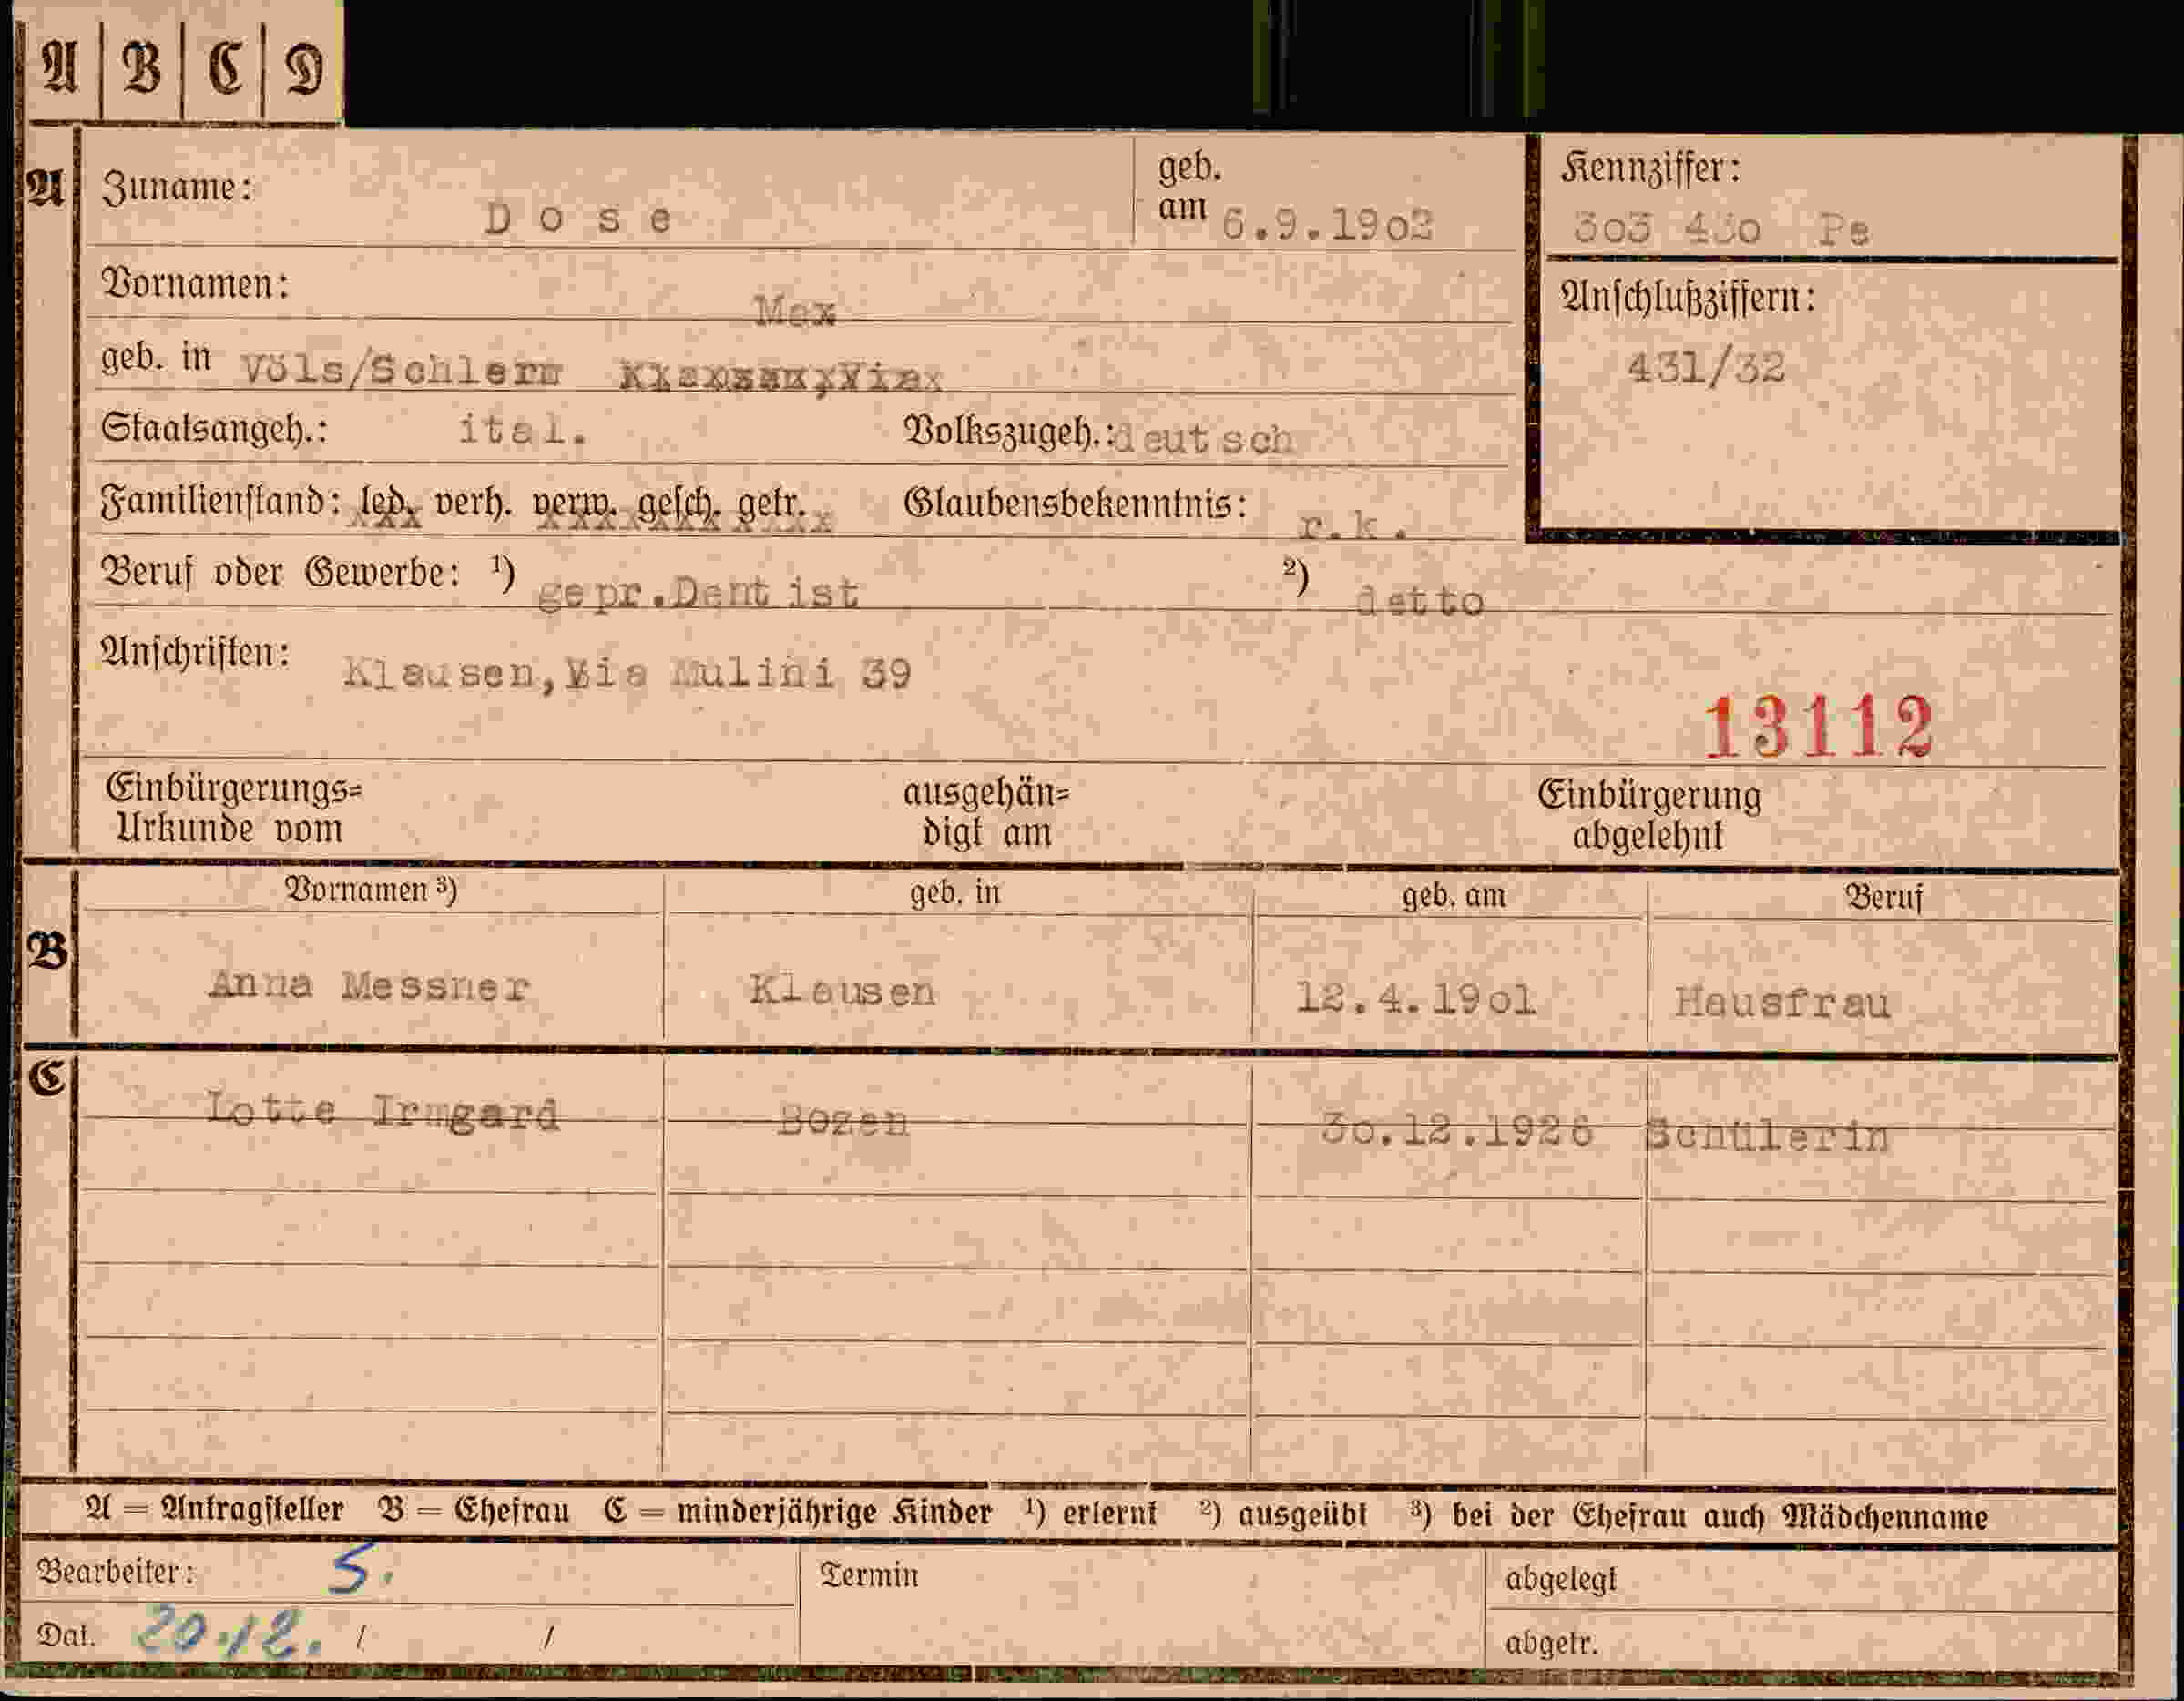 A B C D
A Zuname: Dose geb. am 6.9.1902 Kennziffer: 303 430 Pe
Vornamen: Max Anschlußziffern:
geb. in Völs/Schlern 431/32
Staatsangeh.: ital. Volkszugeh.: deutsch
Familienstand: led. verh. verw. gesch. getr. Glaubensbekenntnis: r.k.
Beruf oder Gewerbe: ¹) gepr.Dentist ²) detto
Anschriften: Klausen, Via Mulini 39
13112
Einbürgerungs= ausgehän= Einbürgerung
Urkunde vom digt am abgelehnt
Vornamen ³) geb. in geb. am Beruf
B Anna Messner Klausen 12.4.1901 Hausfrau
C Lotte Irmgard Bozen 30.12.1926 Schülerin
A = Antragsteller B = Ehefrau C = minderjährige Kinder ¹) erlernt ²) ausgeübt ³) bei der Ehefrau auch Mädchenname
Bearbeiter: S. Termin abgelegt
Dat. 20.12. / / abgetr.